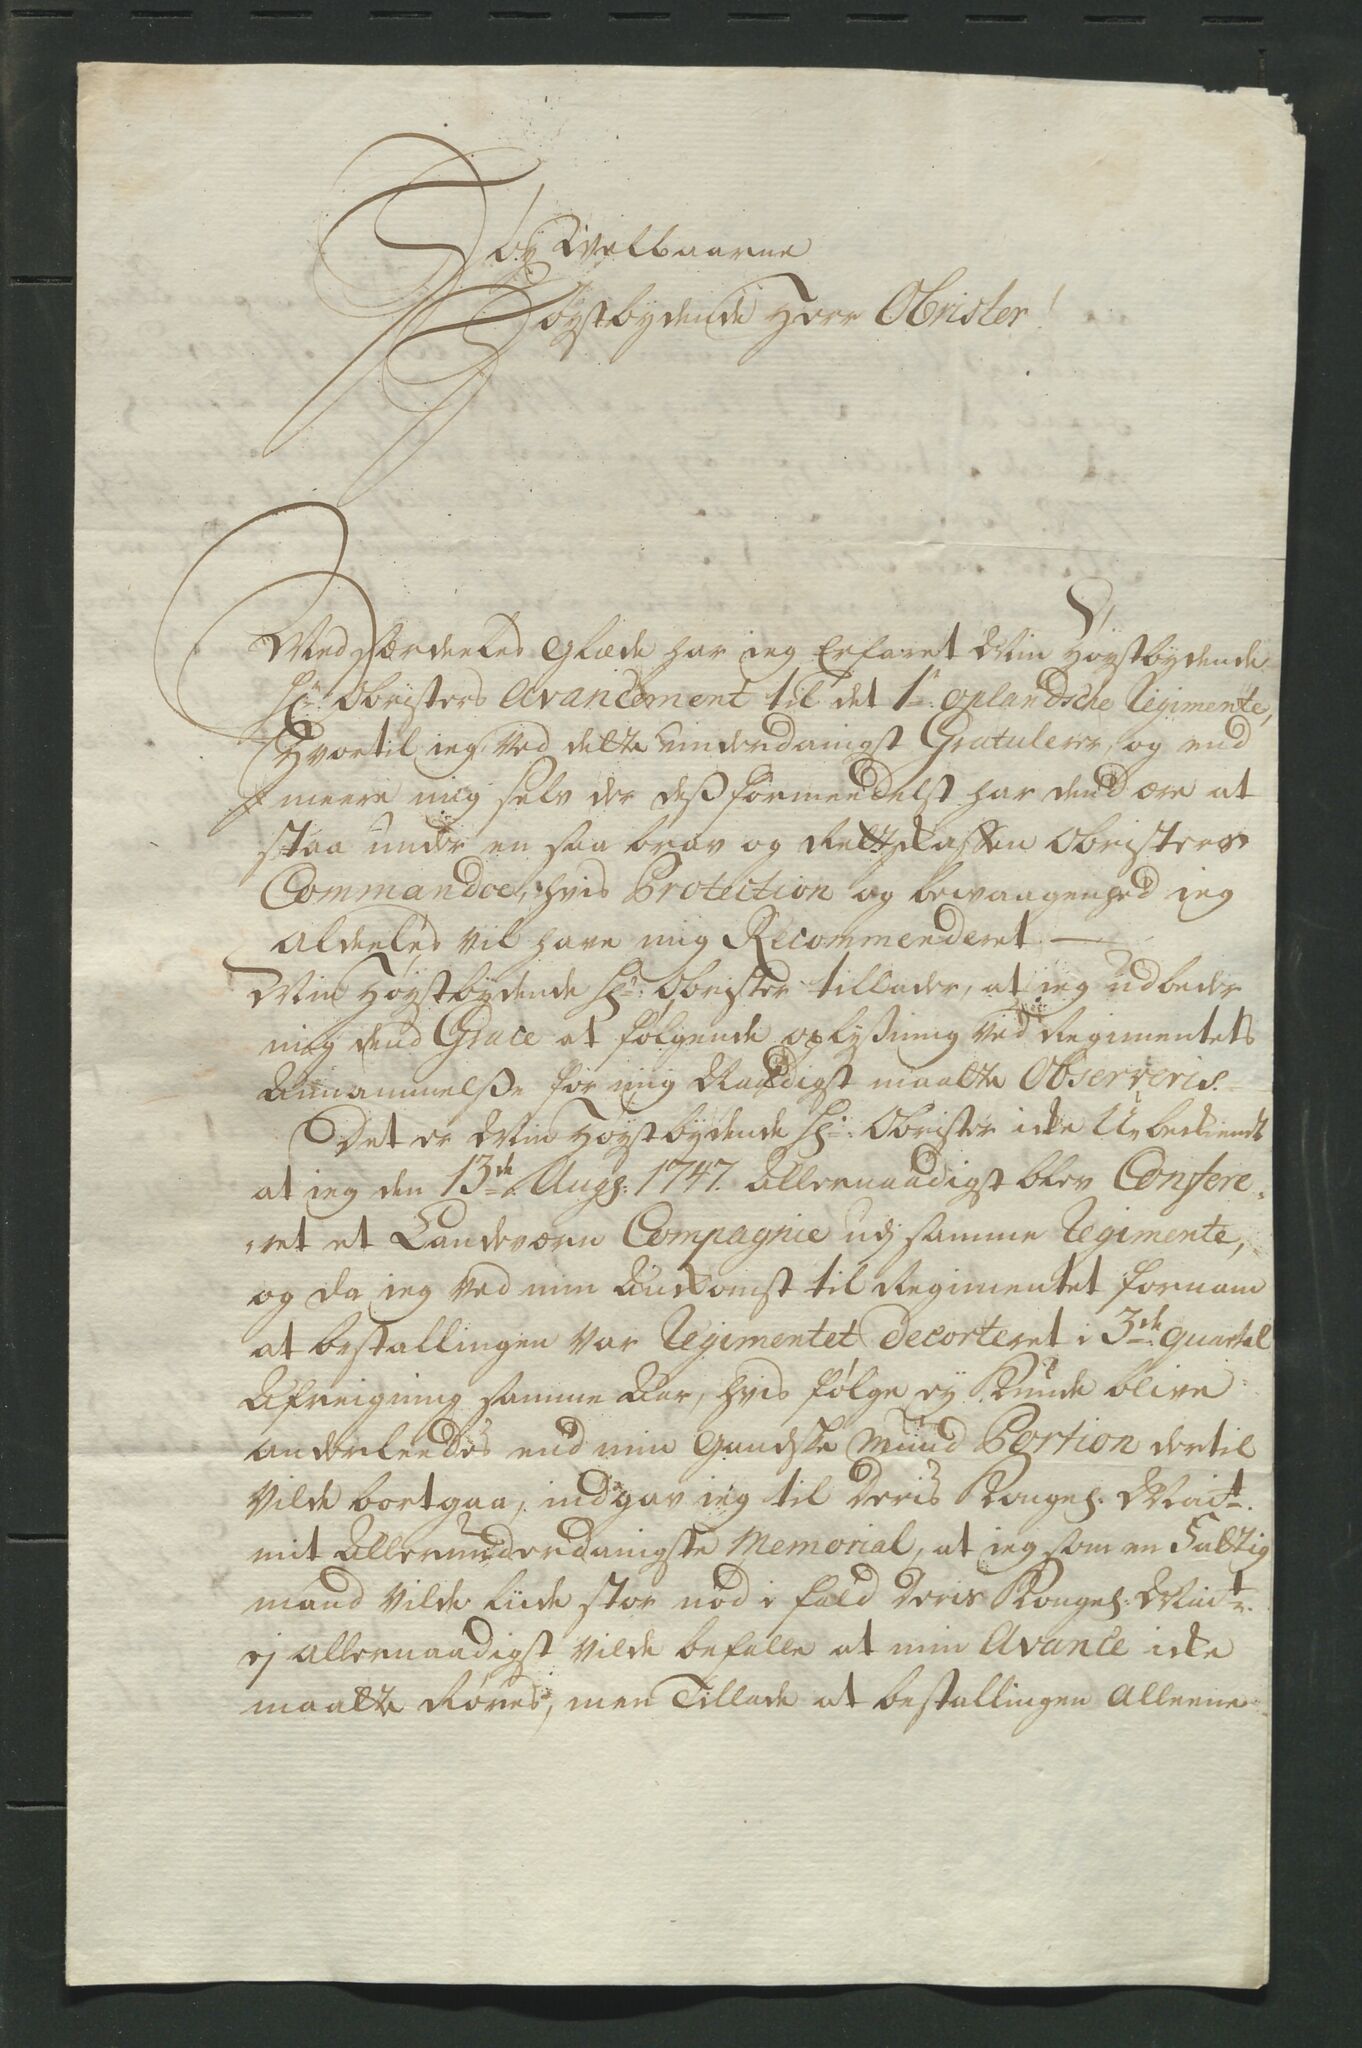 Høy Velbaarne
Høystbydende Herr Obrister!
Med særdeeles Glæde har ieg Erfaret Min Høystbydende
Hr: Obristers Avancement til det 1te oplandsche Regimente,
Hvortil ieg ved dette underdanigst Gratulerer, og end
meere mig selv der desformedelst har dend ære at
staa under en saa brav og Rettskaffen Obristers
Commandoe, hvis Protection og bevaagenhed ieg
aldeeles vil have mig Recommenderet —
Min Høystbydende Hr: Obrister tillader, at ieg udbeder
mig dend Grace at følgende oplysning ved Regimentets
Annammelse for mig Naadigst maatte Observeris.
Det er Min Høystbydende Hr: Obrister icke Ubekiendt
at ieg den 13de Augs: 1747 Allernaadigst blev Confere-
-ret et Landeværn Compagnie udj samme Regimente,
og da ieg ved min Ankomst til Regimentet fornam
at bestallingen var Regimentet decorteret i 3de Quartal
Afreigning samme Aar, hvis følge ey Kunde blive
anderleedes end min gandske Mund Portion dertil
vilde bortgaa, indgav ieg til Deris Kongel: Mait.
mit Allerunderdanigste Memorial, at ieg som en Fattig
mand vilde liide stor nød i fald Deris Kongel: Mait.
ej allernaadigst vilde befalle at min Avance icke
maatte Røres, men Tillade at bestallingen Alleene